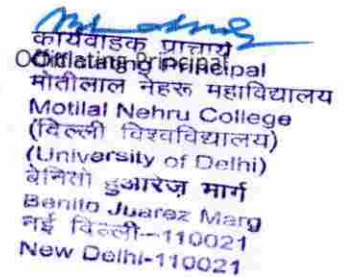 कार्यवाहक प्राचार्य
Officiating Principal
मोतीलाल नेहरू महाविद्यालय
Motilal Nehru College
(दिल्ली विश्वविद्यालय)
(University of Delhi)
बेनितो हुआरेज़ मार्ग
Benito Juarez Marg
नई दिल्ली-110021
New Delhi-110021